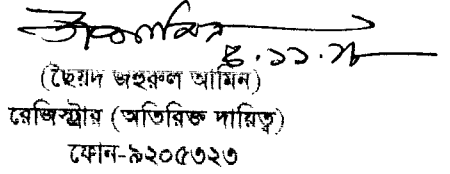 (ছৈয়দ জহুরুল আমিন)
রেজিস্ট্রার (অতিরিক্ত দায়িত্ব)
ফোন-৯২০৫৩২৩